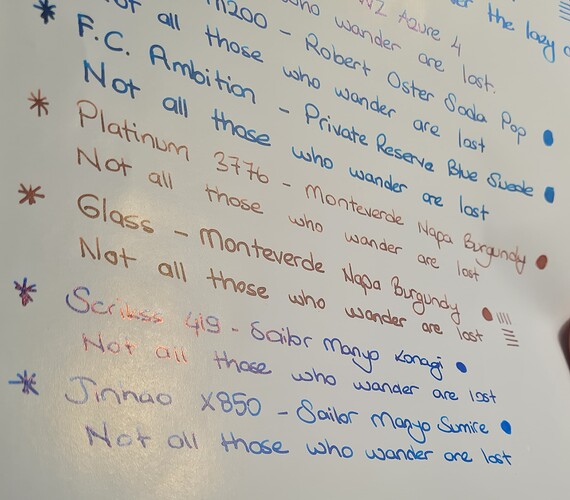 the lazy
WZ Azure 4
who wander are lost.
M200 - Robert Oster Soda Pop
Not all those who wander are lost
F.C. Ambition - Private Reserve Blue Suede
Not all those who wander are lost
Platinum 3776 - Monteverde Napa Burgundy
Not all those who wander are lost
Glass - Monteverde Napa Burgundy
Not all those who wander are lost
Scribss 419 - Sailor Manyo Konagi
Not all those who wander are lost
Jinhao X850 - Sailor Manyo Sumire
Not all those who wander are lost